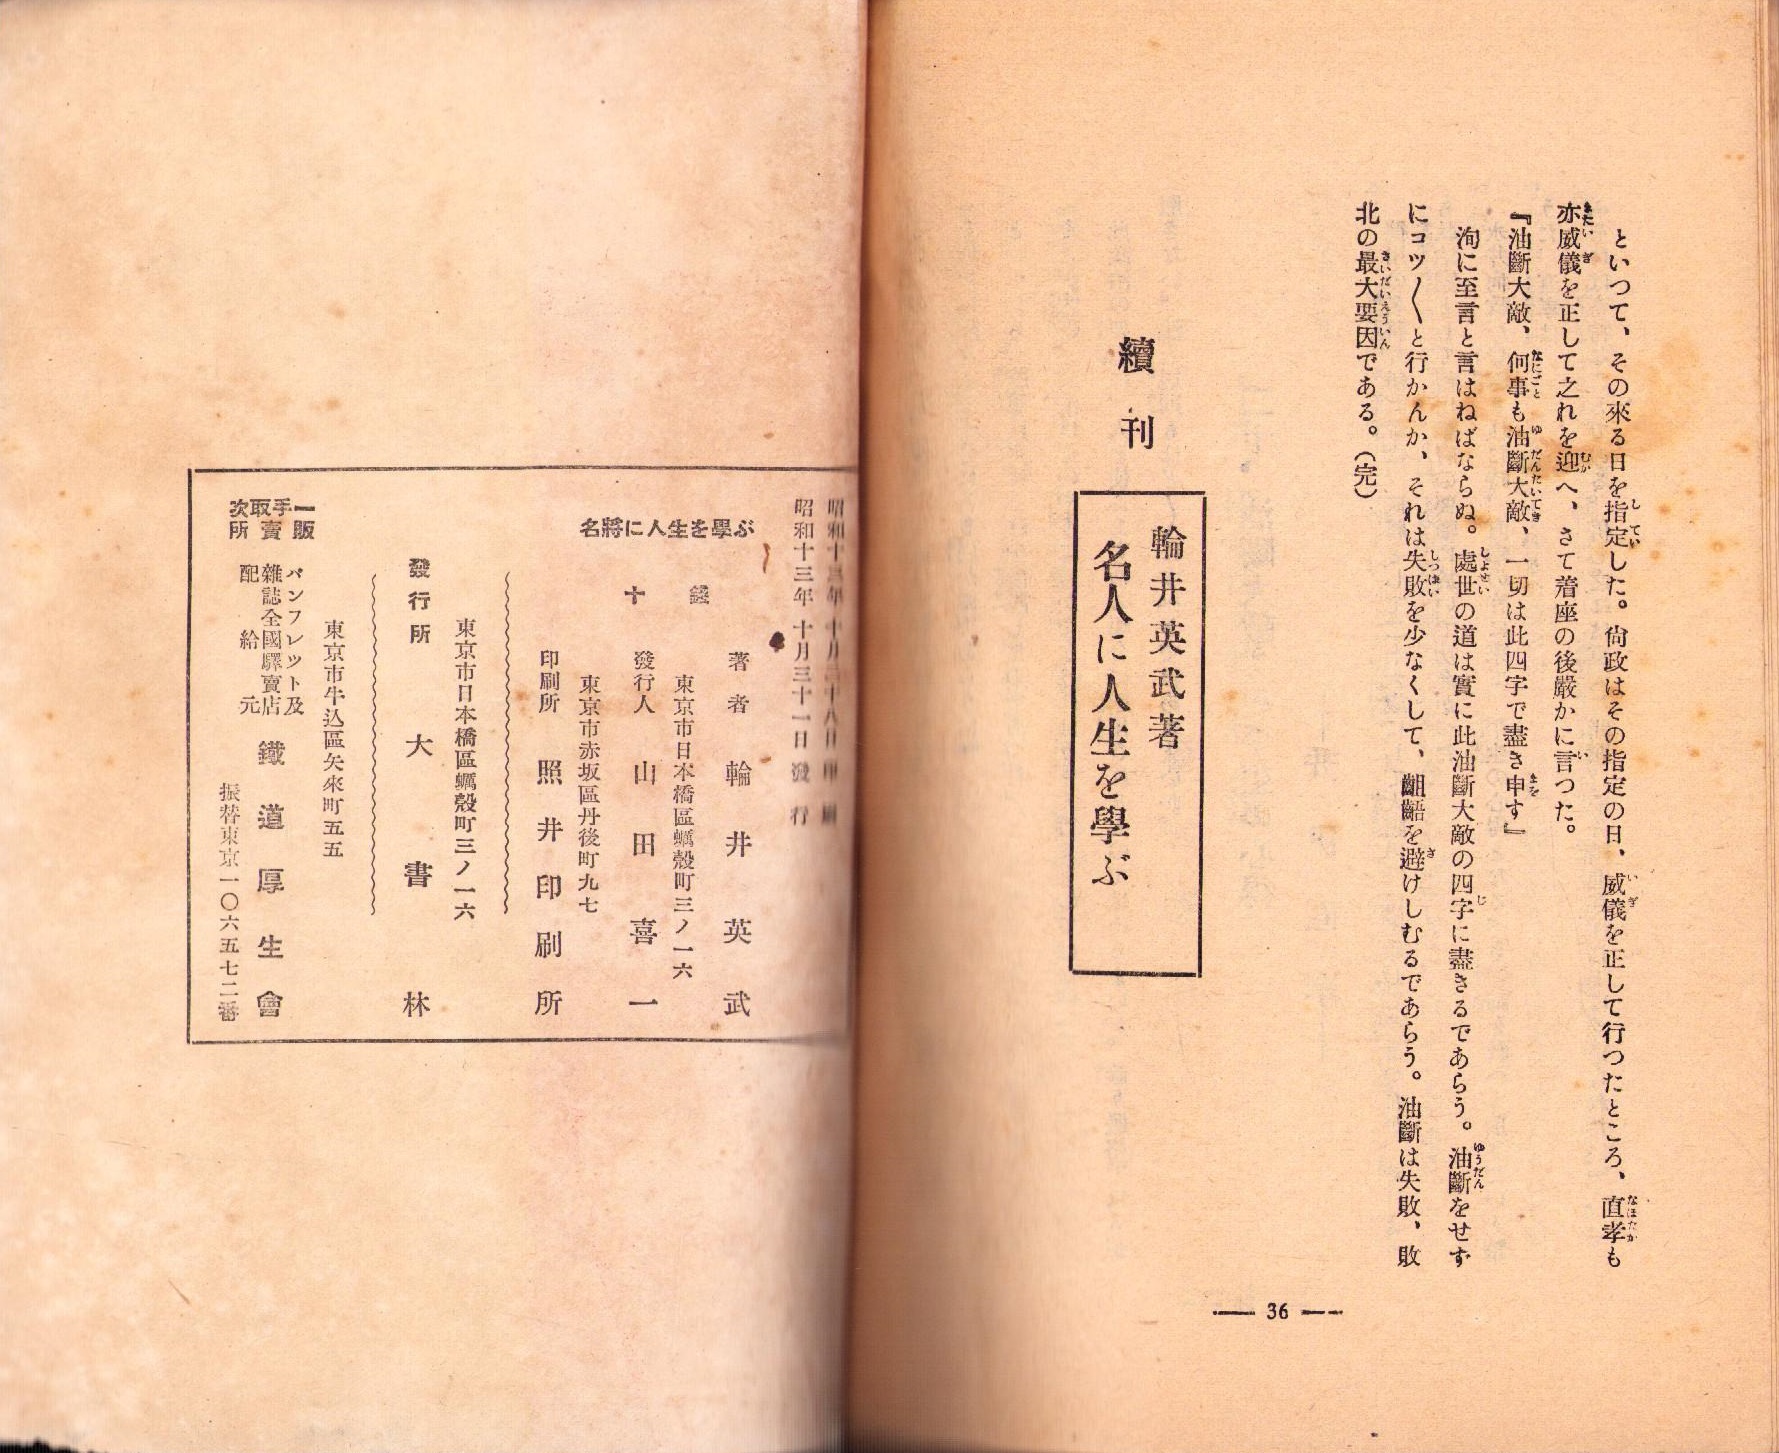 といつて、その來る日を指定した。尙政はその指定の日、威儀を正して行つたところ、直孝も
亦威儀を正して之れを迎へ、さて着座の後嚴かに言つた。
『油斷大敵、何事も油斷大敵、一切は此四字で盡き申す』
洵に至言と言はねばならぬ。處世の道は實に此油斷大敵の四字に盡きるであらう。油斷をせず
にコツ〳〵と行かんか、それは失敗を少なくして、齟齬を避けしむるであらう。油斷は失敗、敗
北の最大要因である。(完)
續刊
輪井英武著
名人に人生を學ぶ
― 36 ―
昭和十三年十月二十八日印刷
昭和十三年十月三十一日發行
名將に人生を學ぶ
十錢
著者 輪井英武
東京市日本橋區蠣殼町三ノ一六
發行人 山田喜一
東京市赤坂區丹後町九七
印刷所 照井印刷所
東京市日本橋區蠣殼町三ノ一六
發行所 大書林
東京市牛込區矢來町五五
一手取次
販賣所
パンフレツト及
雜誌全國驛賣店
配給元
鐵道厚生會
振替東京一〇六五七二番